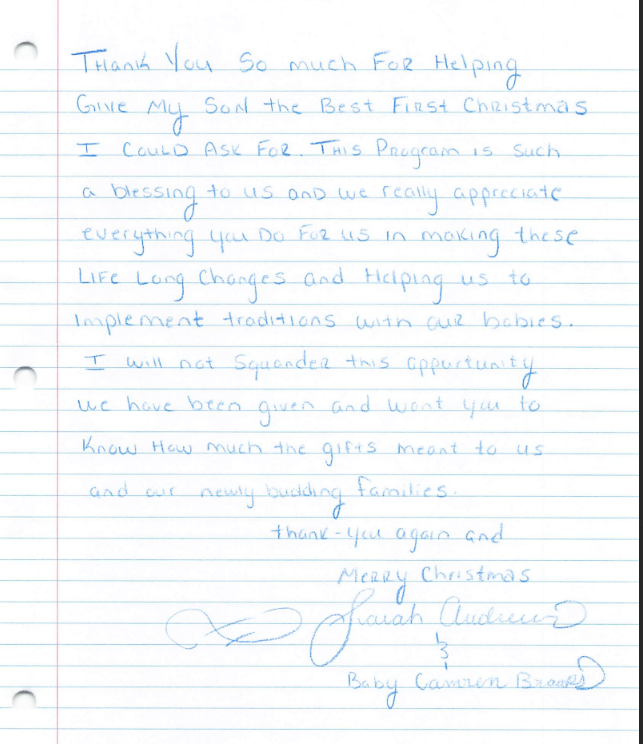 Thank You So much For Helping
Give My Son the Best First Christmas
I Could Ask For. This Program is Such
a blessing to us and we really appreciate
everything you Do For us in making these
Life Long Changes and Helping us to
implement traditions with our babies.
I will not Squander this oppurtunity
we have been given and want you to
Know How much the gifts meant to us
and our newly budding families.
thank-you again and
Merry Christmas
Sarah Andrews
&
Baby Camren